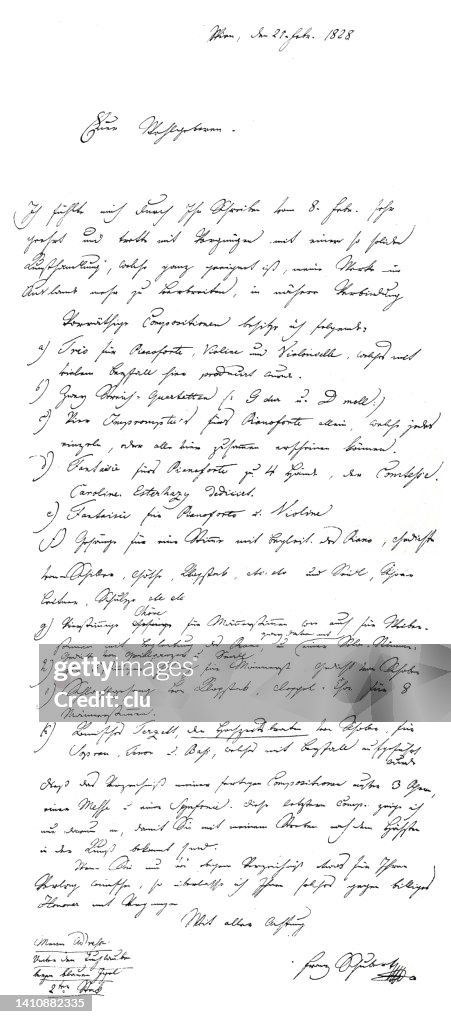 Wien, den 21. Febr. 1828
Euer Wohlgeboren.
Ich fühlte mich durch Ihr Schreiben vom 8. Febr. sehr
geehrt und trette mit Vergnügen mit einer so soliden
Kunsthandlung, welche ganz geeignet ist, meine Werke im
Auslande mehr zu verbreiten, in nähere Verbindung
Vorräthige Compositionen besitze ich folgende:
a) Trio für Pianoforte, Violine und Violoncelle, welches mit
vielem Beyfall hier producirt wurde.
b) Zwey Streich-Quartetten (: G dur u. D moll :)
c) Vier Impromptu's fürs Pianoforte allein, welche jedes
einzeln, oder alle vier zusammen erscheinen können.
d) Fantasie fürs Pianoforte zu 4 Hände, der Comtesse
Caroline Esterhazy dedicirt.
e) Fantaisie für Pianoforte u. Violine
f) Gesänge für eine Stimme mit Begleit. des Piano, Gedichte
von Schiller, Göthe, Klopstock, etc. etc. und Seidl, Schober,
Leitner, Schulze etc etc
g) Vierstimmige Chöre für Männerstimmen wie auch für Weiber-
stimmen mit Begleitung des Piano, zwey davon mit einer Solo-Stimme,
für Männerst. Gedicht von Schober
i) Schlachtgesang von Klopstock, Doppel-Chor für 8
Männerstimmen.
k) Komisches Terzett, der Hochzeitsbraten von Schober, für
Sopran, Tenor u. Bass, welches mit Beyfall aufgeführt
wurde
Diess das Verzeichniß meiner fertigen Compositionen außer 3 Opern,
einer Messe u. einer Symfonie. Diese letztern Comp. zeige ich
nur darum an, damit Sie mit meinem Streben nach dem Höchsten
in der Kunst bekannt sind.
Wenn Sie nun von obigem Verzeichniß etwas für Ihren
Verlag wünschen, so überlasse ich Ihnen solches gegen billiges
Honorar mit Vergnügen
Mit aller Achtung
Meine Adresse
Unter den Tuchlauben
beym blauen Igel
2ter Stock
Franz Schubert
gettyimages
Credit: clu
1410882335